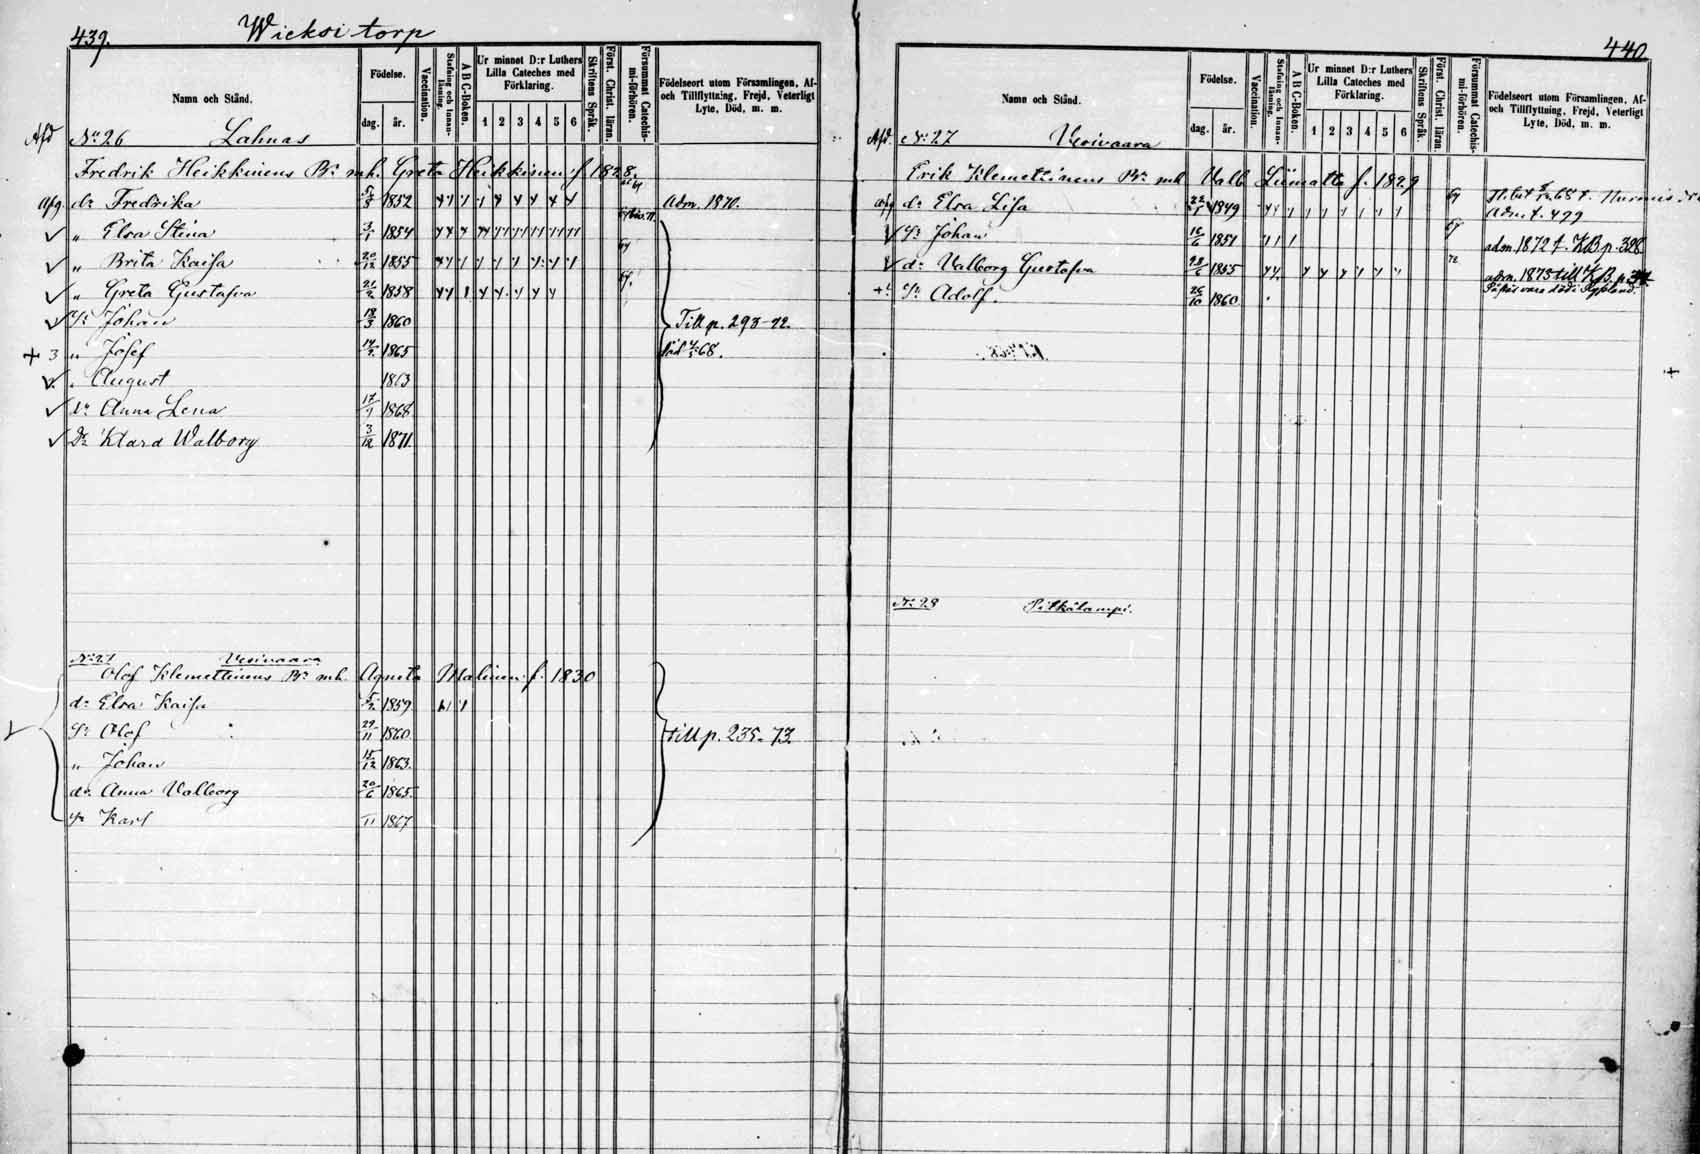 439. Wieksi torp
Namn och Stånd.
Födelse.
dag. år.
Vaccination.
Stafning och Innanläsning.
A B C-Boken.
Ur minnet D:r Luthers Lilla Cateches med Förklaring.
1 2 3 4 5 6
Skriftens Språk.
Först. Christ. läran.
Försummat Catechismi-förhören.
Födelseort utom Församlingen, Af- och Tillflyttning, Frejd, Veterligt Lyte, Död, m. m.
Afd No 26 Lahnas
Fredrik Heikkinens Br mh. Greta Heikkinen f. 1828
Afg. dr Fredrika 1852 Adm. 1870.
" Elsa Stina 3/1 1854
" Brita Kaisa 20/12 1855
" Greta Gustafva 21/2 1858
Sr Johan 18/3 1860 Till p. 293-72.
+ 3 " Josef 14/2 1865 död 68.
" August 1863
dr Anna Lena 17/1 1868
Dr Klara Walborg 3/12 1871
No 27 Vesivaara
Olof Klemettinens Br mh. Agneta Malinen f. 1830
dr Elsa Kaisa 5/2 1859
Sr Olof 29/11 1860 till p. 235-73
" Johan 15/12 1863
dr Anna Valborg 20/6 1865
Sr Karl 11 1867
440.
Namn och Stånd.
Födelse.
dag. år.
Vaccination.
Stafning och Innanläsning.
A B C-Boken.
Ur minnet D:r Luthers Lilla Cateches med Förklaring.
1 2 3 4 5 6
Skriftens Språk
Först. Christ. läran.
Försummat Catechismi-förhören.
Födelseort utom Församlingen, Af- och Tillflyttning, Frejd, Veterligt Lyte, Död, m. m.
Afd. No 27 Vesivaara
Erik Klemettinens Br mh Valb. Liimatta f. 1829
afg dr Elsa Lisa 1849 69 Adm. f. 499
Sr Johan 16/6 1851 69 adm. 1872 f. KB p. 328
dr Valborg Gustafva 28/6 1855 72 adm. 1873 till KB p.
Sr Adolf. 26/10 1860 Påstås vara död i Ryssland.
No 28 Pitkälampi.